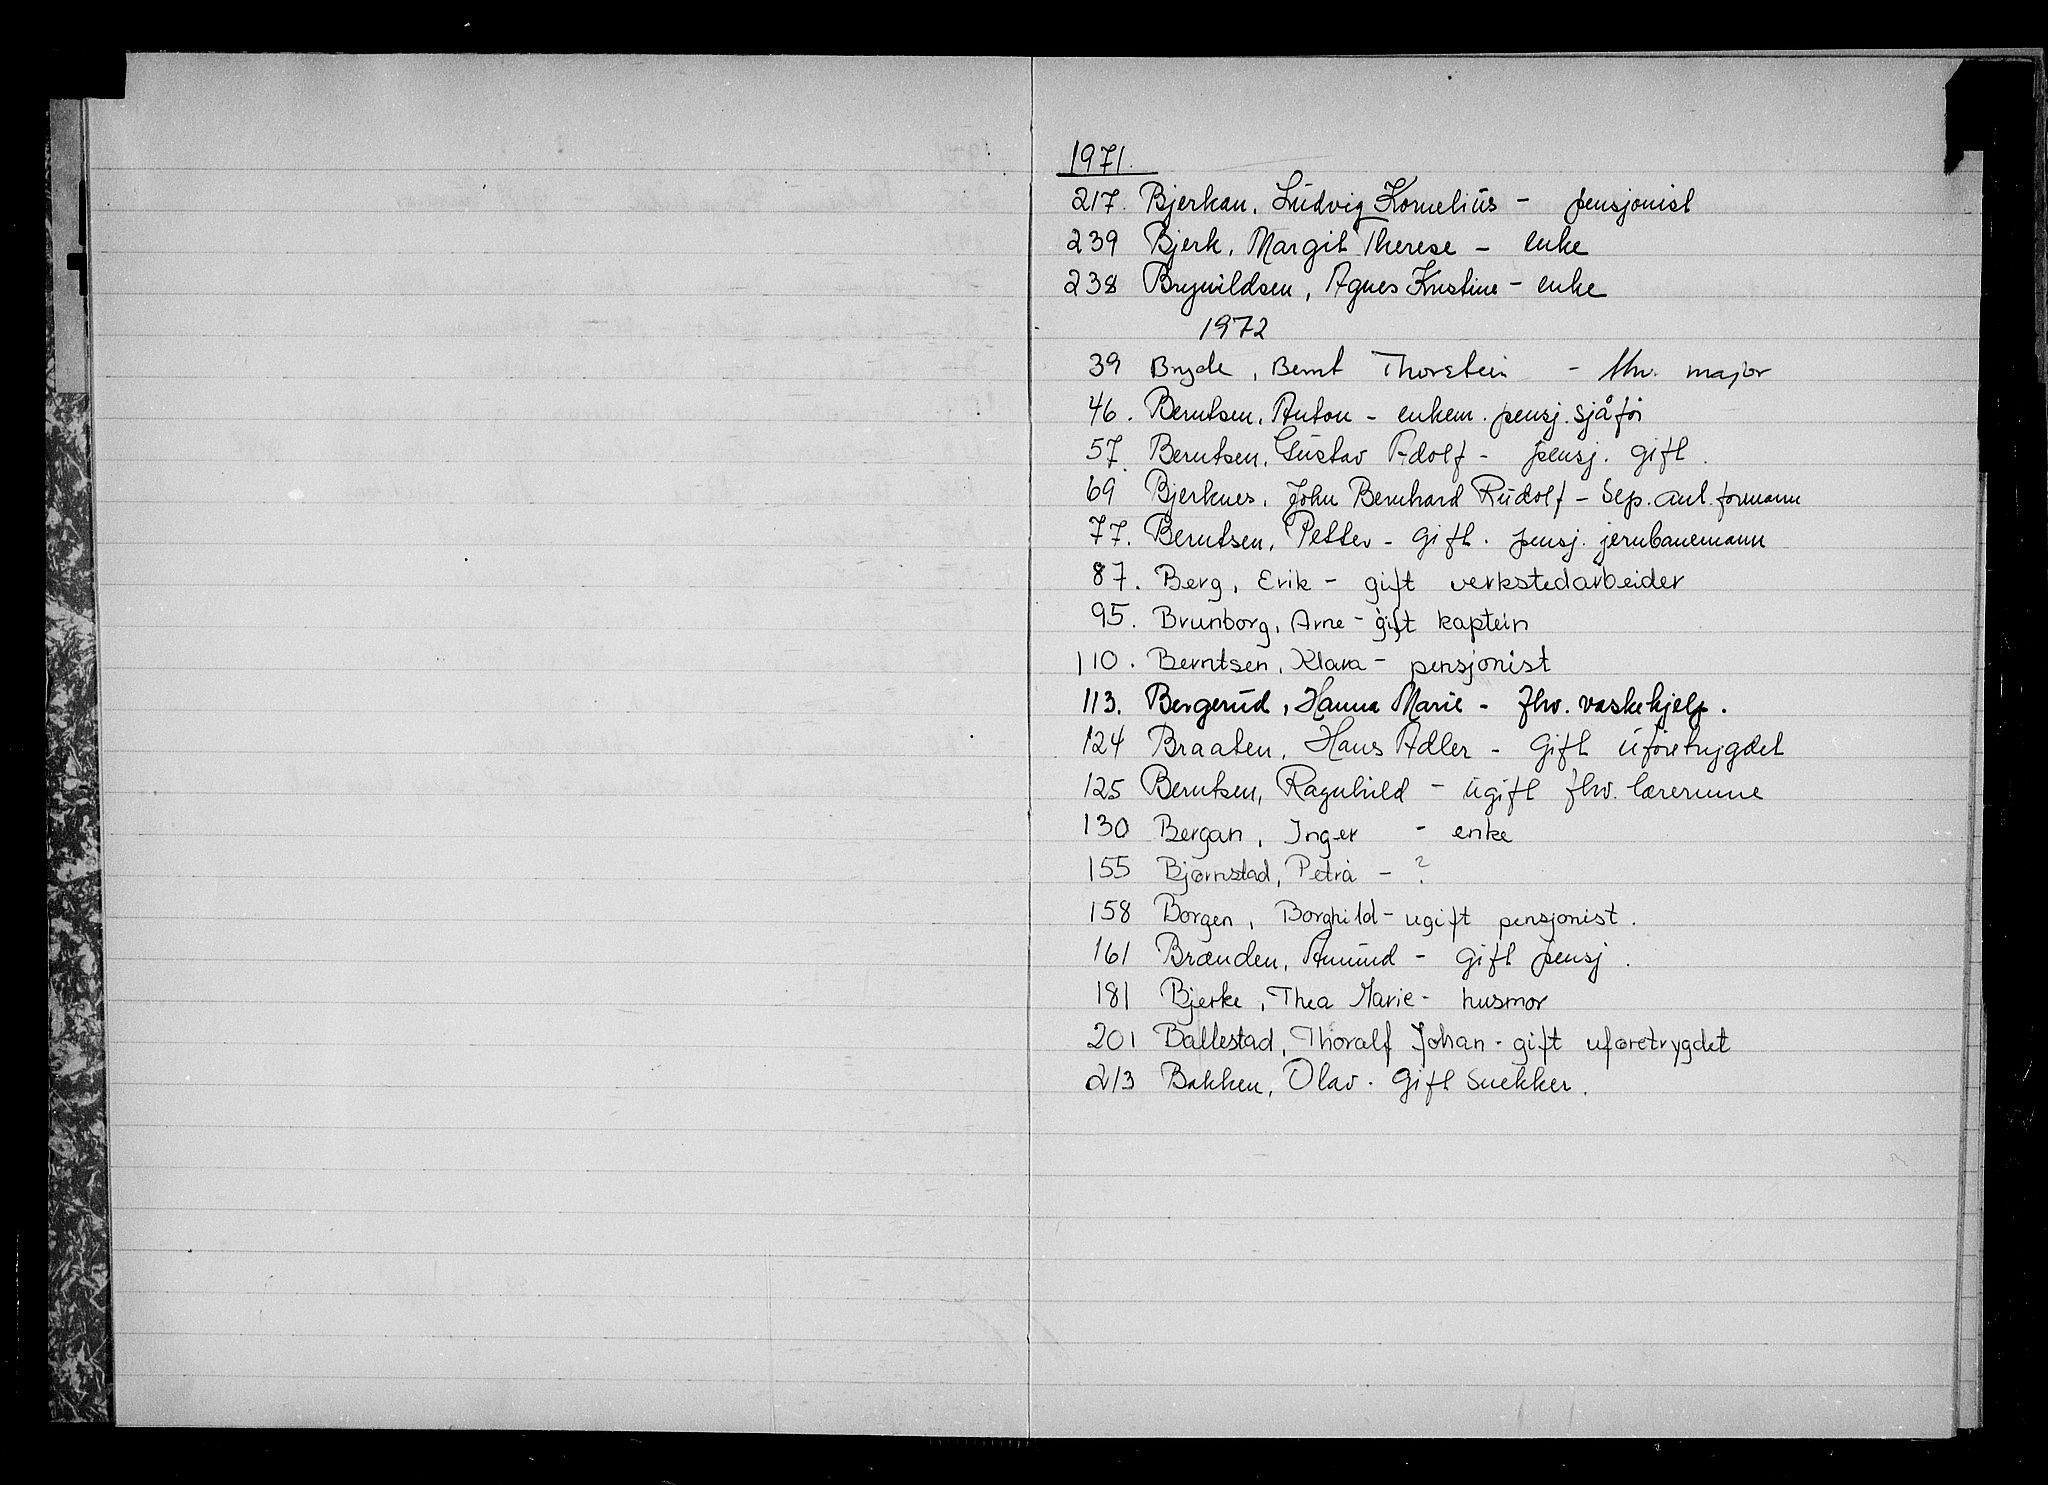 1971.
217. Bjerkan, Ludvig Kornelius - pensjonist
239 Bjerk, Margit Therese - enke
238 Brynildsen, Agnes Kristine - enke
1972
39 Bryde, Bernt Thorstein - fhv. major
46. Berntsen, Anton - enkem. pensj. sjåfør
57. Berntsen, Gustav Adolf - pensj. gift.
69 Bjerknes, John Bernhard Rudolf - Sep. anl. formann
77. Berntsen, Petter - Gift. pensj. jernbanemann
87. Berg, Erik - gift verkstedarbeider
95. Brunborg, Arne - gift kaptein
110. Berntsen, Klara - pensjonist
113. Bergerud, Hanna Marie - fhv. vaskehjelp.
124 Braaten, Hans Adler - Gift uføretrygdet
125 Berntsen, Ragnhild - ugift fhv. lærerinne
130 Bergan, Inger - enke
155 Bjørnstad, Petra - ?
158 Borgen, Borghild - ugift pensjonist.
161 Brænden, Amund - Gift pensj.
181 Bjerke, Thea Marie - husmor
201 Ballestad, Thoralf Johan - gift uføretrygdet
213 Bakken, Olav. Gift Snekker.